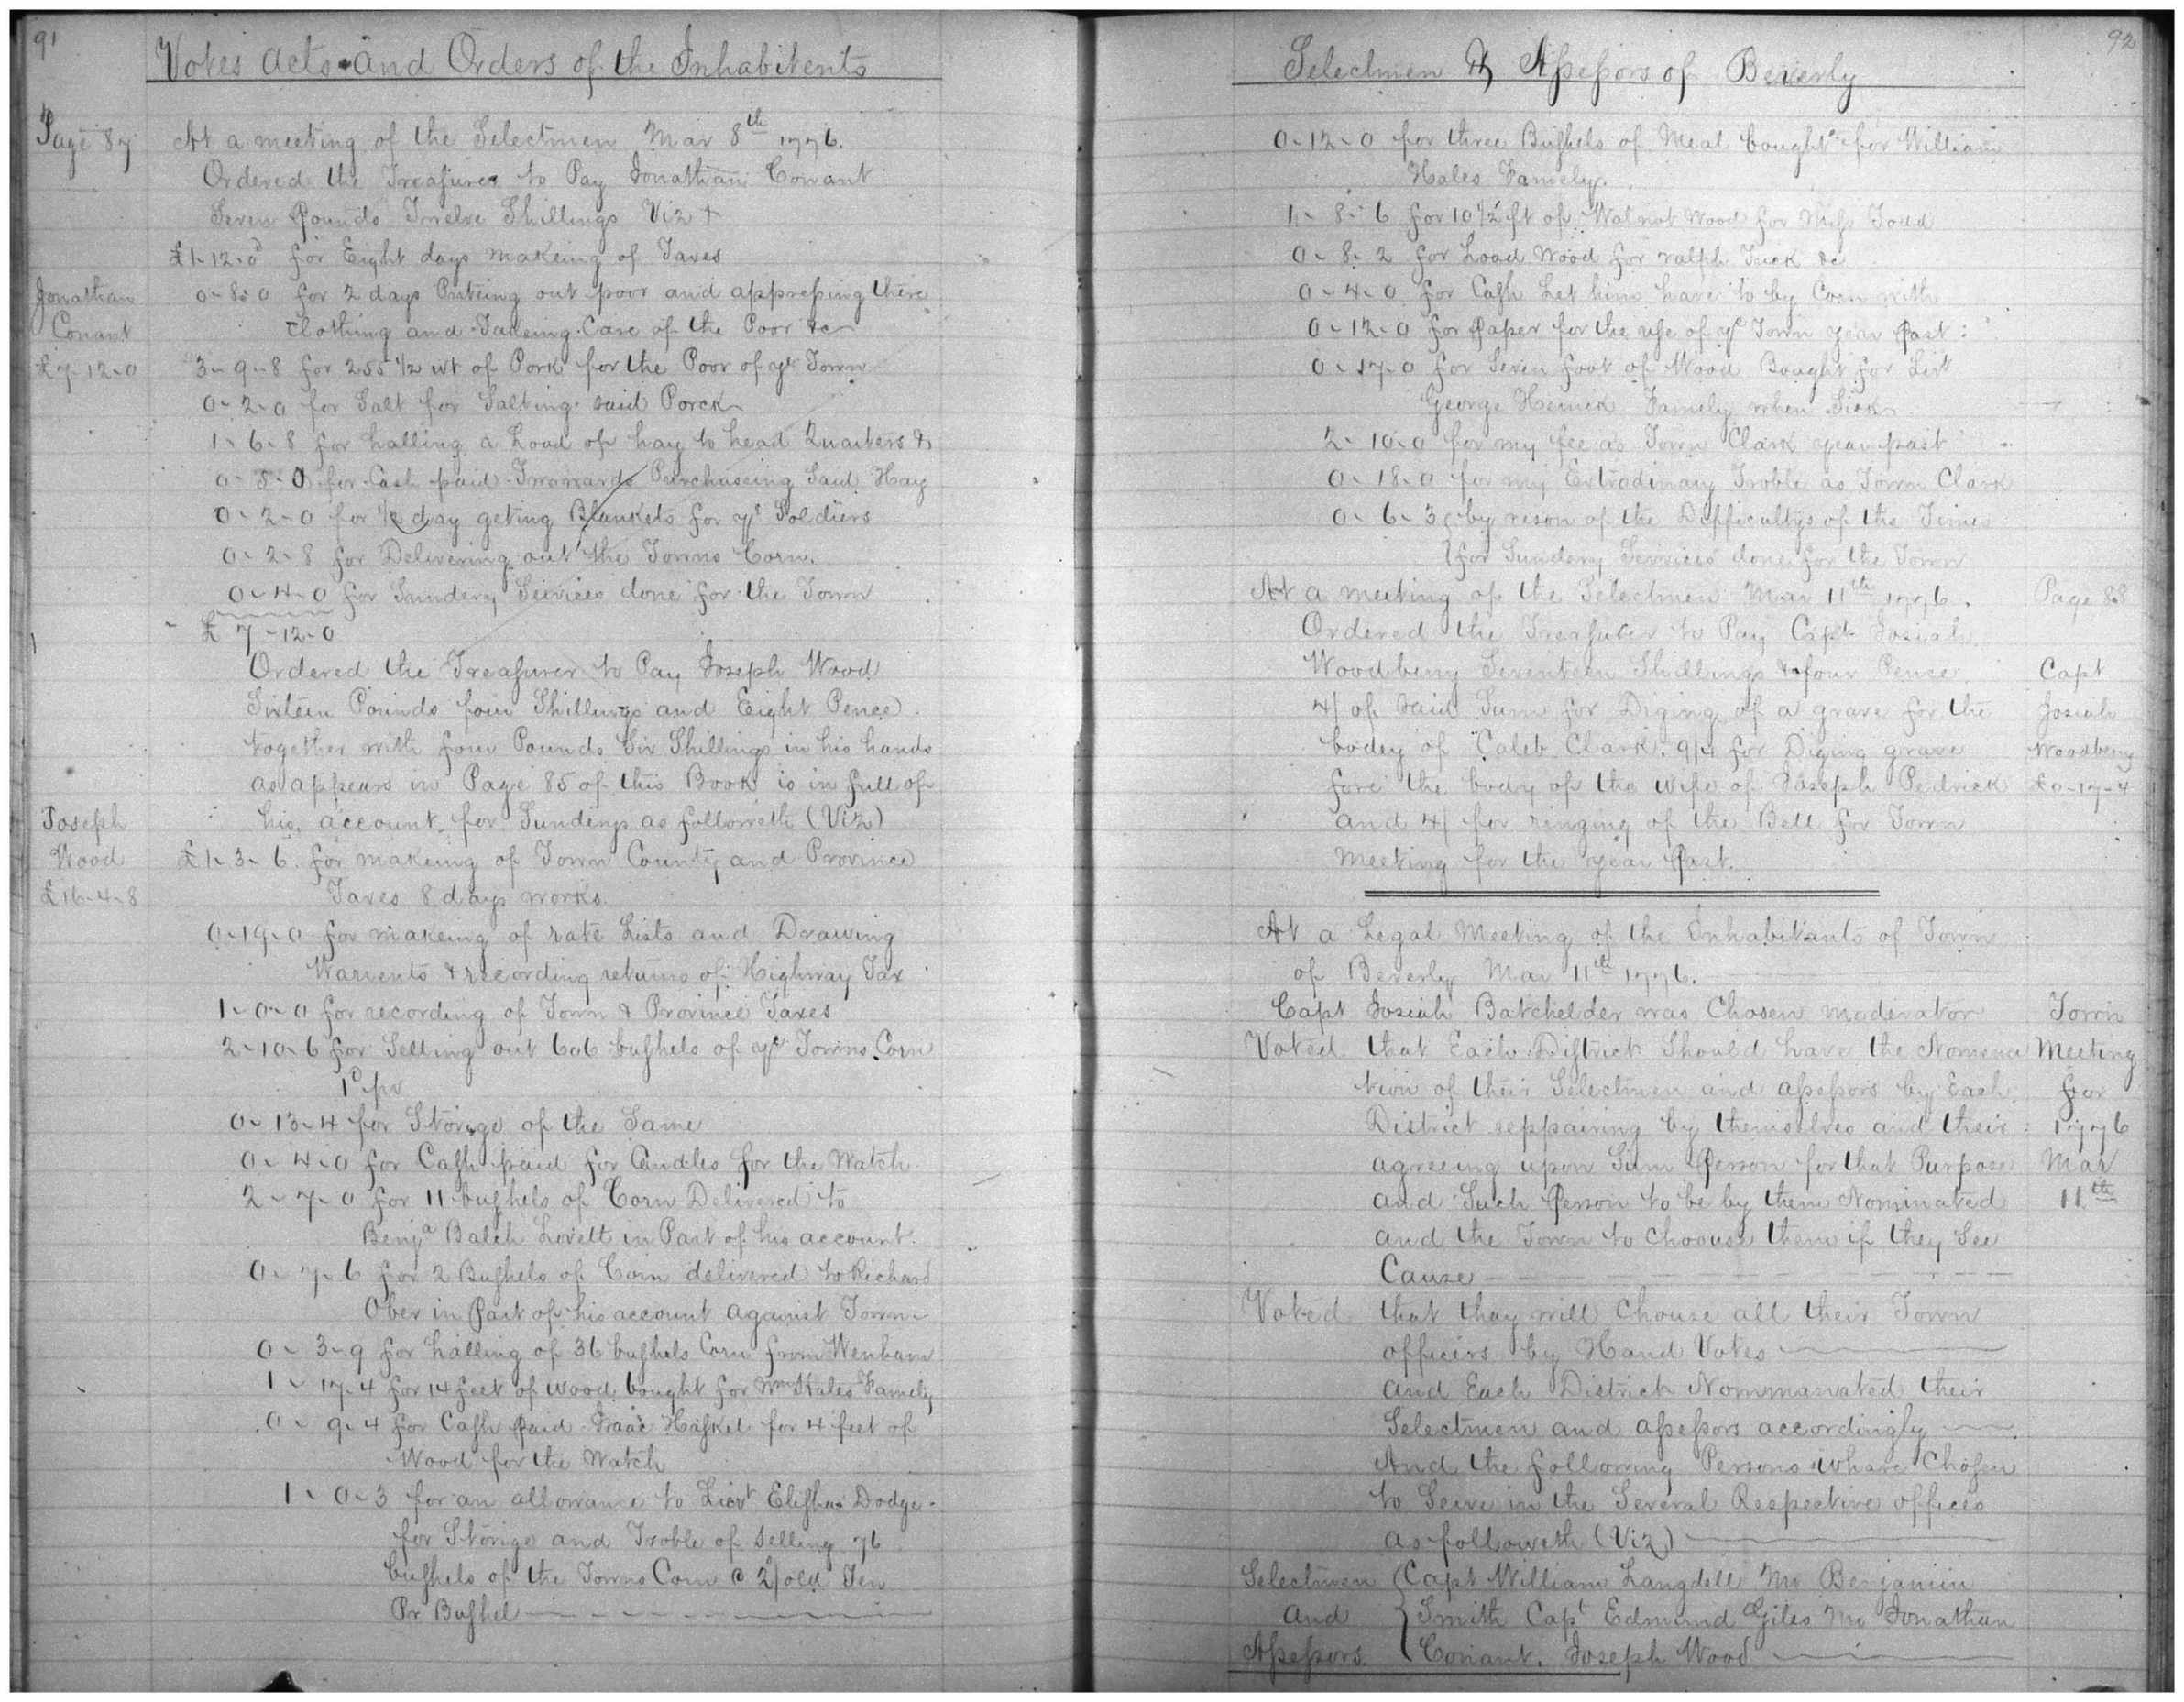 91
Votes Acts and Orders of the Inhabitents
Page 87
At a meeting of the Selectmen Mar 8th 1776.
Ordered the Treasurer to Pay Jonathan Conant
Seven Pounds Twelve Shillings Viz
£1-12-0 for Eight days makeing of Taxes
Jonathan
Conant
£7-12-0
0-8-0 for 2 days Puteing out poor and appresping there
clothing and Takeing Care of the Poor &c
3-9-8 for 255 1/2 wt of Pork for the Poor of ye Town
0-2-0 for Salt for Salting said Porck
1-6-8 for halling a Load of hay to head Quarters &
0-8-0 for Cash paid Towards Purchaseing Said Hay
0-2-0 for 1/2 day geting Blankets for ye Soldiers
0-2-8 for Delivering out the Towns Corn.
0-4-0 for Sundery Services done for the Town
£7-12-0
Ordered the Treasurer to Pay Joseph Wood
Sixteen Pounds four Shillings and Eight Pence
together with four Pounds Six Shillings in his hands
as appears in Page 85 of this Book is in full of
his account for Sunderys as followeth (Viz)
Joseph
Wood
£16-4-8
£1-3-6 for makeing of Town County and Province
Taxes 8 days works
0-19-0 for makeing of rate Lists and Drawing
Warrents & recording returns of Highway Tax
1-0-0 for recording of Town & Province Taxes
2-10-6 for Selling out 606 bushels of ye Towns Corn
1d pr
0-13-4 for Storige of the Same
0-4-0 for Cash paid for Candles for the Watch
2-7-0 for 11 bushels of Corn Delivered to
Benja Balch Lovett in Part of his account.
0-7-6 for 2 Bushels of Corn delivered to Richard
Ober in Part of his account against Town
0-3-9 for halling of 36 bushels Corn from Wenham
1-17-4 for 14 feet of wood bought for Wm Hales Famely
0-9-4 for Cash paid Isaac Hasket for 4 feet of
Wood for the Watch
1-0-3 for an allowance to Lieut Elisha Dodge
for Storige and Troble of selling 76
bushels of the Towns Corn @ 2/ old Ten
Pr Bushel
92
Selectmen & Assessors of Beverly
0-12-0 for three Bushels of Meal bought for William
Hales Famely.
1-8-6 for 10 1/2 ft of Walnot Wood for Miss Todd
0-8-2 for Load Wood for ralph Tuck &c
0-4-0 for Cash Let him have to by Corn with
0-12-0 for Paper for the use of ye Town year Past
0-17-0 for Seven foot of Wood Bought for Lit
George Famely when Sick
2-10-0 for my fee as Town Clark year past
0-18-0 for my Extradinary Troble as Town Clark
0-6-3 by reson of the Difficultys of the Times
for Sundery Services done for the Town
At a meeting of the Selectmen Mar 11th 1776.
Page 88
Ordered the Treasurer to Pay Capt Josiah
Woodberry Seventeen Shillings & four Pence
4/ of said Sum for Diging of a grave for the
bodey of Caleb Clark. 9/4 for Diging grave
fore the body of the wife of Joseph Pedrick
and 4/ for ringing of the Bell for Town
meeting for the year Past.
Capt
Josiah
Woodberry
£0-17-4
At a Legal Meeting of the Inhabitants of Town
of Beverly Mar 11th 1776.
Capt Josiah Batchelder was Chosen moderator
Voted that Each District Should have the Nomena
tion of their Selectmen and assessors by Each
District reppairing by themselves and their
agreeing upon Sum Person for that Purpose
and Such Person to be by them Nominated
and the Town to Choouse them if they See
Cause
Town
Meeting
for
1776
Mar
11th
Voted that thay will Chouse all their Town
officirs by Hand Votes
and Each District Nommanated their
Selectmen and assessors accordingly
And the following Persons whare Chosen
to Serve in the Several Respective offices
as followeth (Viz)
Selectmen
and
Assessors.
Capt William Langdell Mr Benjamin
Smith Capt Edmund Giles Mr Jonathan
Conant. Joseph Wood